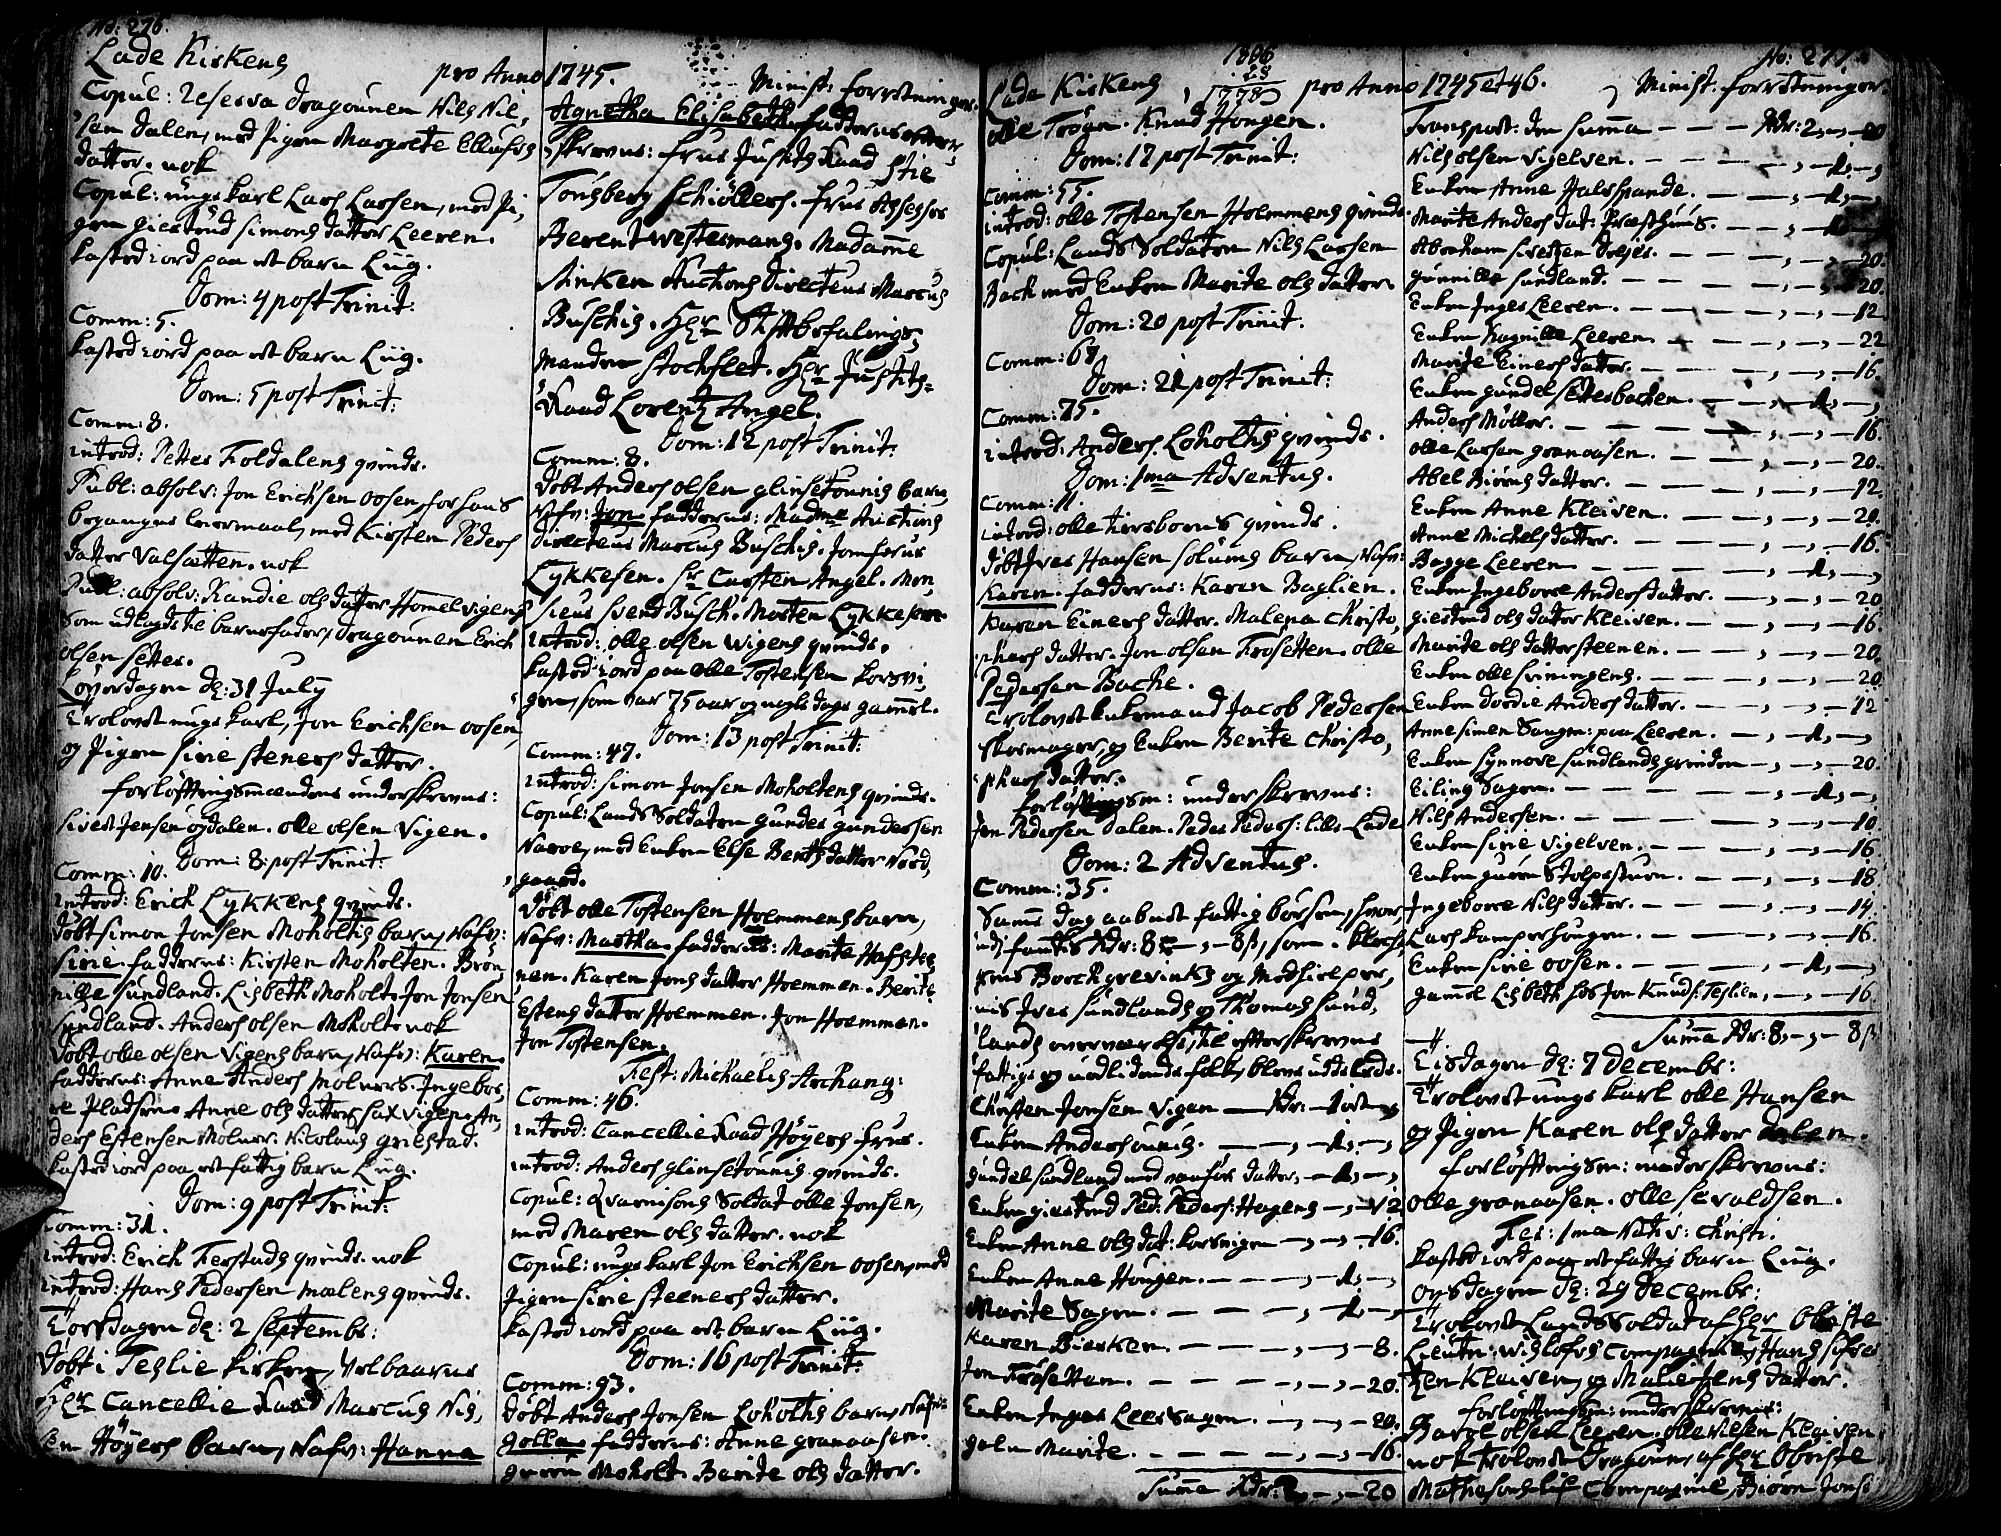 No: 276.
Lade Kirkens
pro Anno 1745.
Minist: forretninger.
Copul: reserva dragounen Nils Nil,
sen Dalen, med Pigen Margrete Ellufs
datter. nok
Copul: ungkarl Lars Larsen, med Pi,
gen Giertrud Simons datter Leeren.
kasted iord paa et barn Liig.
Dom: 4 post Trinit:
Comm: 5.
kasted iord paa et barn Liig.
Dom: 5 post Trinit:
Comm: 8.
introd: Petter Foldalens qvinde.
Publ: absolv: Jon Erichsen oosen, for hans
begangne leiermaal, med Kirsten Peders
datter Valsætten. nok
Publ: absolv: Randie ols datter Hommelvigens
som udlagde te barnefader, dragounen Erich
olsen setter.
Løverdagen dg: 31 July
Trolovet ungkarl, Jon Erichsen oosen,
og Pigen sirie steners datter.
forløfftningsmændene underskrevne:
sivert Jensen ogdalen. olle olsen Vigen.
Dom: 8 post Trinit:
Comm: 10.
introd: Erich Lykkens qvinde.
døbt simon Jonsen Moholtis barn, Nafv:
Sirie. fadderne: Kirsten Moholten. Brøn
nille sundland. Lisbeth Moholt. Jon Jonsen
sundland. Anders olsen Moholt. nok
Døbt olle olsen Vigens barn, Nafv: Karen.
fadderne: Anne Anders Mølners. Ingebor,
re Pladsen. Anne ols datter sax vigen. An,
ders Estensen Mølner. Nicolaus griestad.
kasted iord paa et fattig barn Liig.
Dom: 9 post Trinit:
Comm: 31.
introd: Erich Ferstads qvinde. nok
introd: Hans Pedersen mælens qvinde.
Torsdagen dg: 2 Septembr:
Døbt i Teslie kirken, Velbaarne
Hr Cancellie Raad Marcus Nis,
sen Høyers barn, Nafv: Hanna
Agnetha Elisabeth. fadderne efter,
skrevne: frue Justits Raad Stie
Tonsberg Schiøllers. frue Assessor
Berent Westermans. Madame
Sinken Auctions Directeur Marcus
Buschis. Hr Stiftbefalings,
manden Stochflet. Hr Justits=
Raad Lorentz Angel.
Dom: 12 post Trinit:
Comm: 8.
Døbt Anders olsen glinsetounis barn,
Nafv: Jon. fadderne: Madme Auctions
directeur Marcus Buschis. Jomfrue
Lykkesen. Sr Carsten Angel. Mon,
sieur Svend Busch. Morten Lykkesen
introd: olle olsen wigens qvinde.
kasted iord paa olle Tostensen korsvi,
gen, som var 75 aar og nogle dags gammel.
Dom: 13 post Trinit:
Comm: 47.
introd: simon Jonsen Moholtens qvinde.
Copul: Lands Soldaten gunder gundersen
Narve, med Enken Else Bents datter Nord,
gaard.
Døbt olle Tostensen Hoemmens barn,
Nafv: Martha. fadderne: Marite Hafste,
nen. Karen Jons datter Hoemmen. Berite
Estens datter Hoemmen. Jon Hoemmen.
Jon Tostensen.
Fest: Michaelis Archang:
Comm: 46.
introd: Cancellie Raad Høyers frue.
introd: Anders glinsetounis qvinde.
Copul: Qvarnisons Soldat olle Jonsen,
med Maren ols datter. nok
Copul: ungkarl Jon Erichsen oosen, med
Pigen sirie steeners datter.
kasted iord paa et barn Liig.
Dom: 16 post Trinit:
Comm: 93.
Døbt Anders Jonsen Loholtis barn, Nafv:
golla. fadderne: Anne granaasen.
guren Moholt. Berite ols datter.
1806
28
1778
No: 277.
Lade Kirkens
pro Anno 1745 et 46.
Minist. forretninger.
olle Trøan. Knud Hougen.
Dom: 17 post Trinit:
Comm: 55.
introd: olle Tostensen Hoemmens qvinde.
Copul: Lands Soldaten Nils Larsen
Bach med Enken Marite ols datter.
Dom: 20 post Trinit:
Comm: 67
Dom: 21 post Trinit:
Comm: 75.
introd: Anders Loholtis qvinde.
Dom: 1ma Adventus.
Comm: 11
introd: olle tiersborns qvinde.
døbt Ives Hansen solums barn, Nafv:
Karen. fadderne: Karen Baglien.
Karen Einers datter. Malena Christo,
phers datter. Jon olsen Frosetten. olle
Pedersen Bache.
Trolovet enkemand Jacob Pedersen
skomager, og Enken Berite Christo,
phers datter.
forløfftningsm: underskrevne:
Jon Pedersen dalen. Peder Peders: lille Lade
Dom: 2 Adventus.
Comm: 35.
Samme dag aabnet fattig børsen, hvor
udj fantis Rdr: 8 - , - 8β, som. klocke,
rens Borchgrevinks og Medhielper,
nis Ives sundlands og Thomas sund,
lands overværelse, til effterskrevne
fattige og nødlidende folk, blev uddeeled.
Christen Jonsen Vigen — Rdr: - 1 ort - ,
Enken Anders unis. - - , - 1, - ,
gundel sundland med vanfør datter, - 1, - ,
Enken giertrud Ped: Peders: Hagens - , - 12
Enken Anne ols dat: korsvigen - , - , - 16.
Enken Anne Hougen. - - - , - 1, - ,
Marite Sagen. - - - , - 1. - ,
Karen Bierken. - - - , - , - 8.
Jon Frøsettem. - - - , - , - 20.
Enken Inger Leer sagen. - , - , - 20.
galn Marite. - - - - , - , - 16.
Summa Rdr: 2, - , - 20
Transport: den summa - - - Rdr: 2, - , - 20
Nils olsen Vigelven. - - - , - 1, - ,
Enken Anne Halsspande. - - - , - 1, - ,
Marite Anders dat: Præsthuus. - - , - 1, - ,
Abraham sivertsen dreier. - - - , - , - 20.
gunnille sundland. - - - , - , - 20.
Enken Inger Leeren. - - - , - , - 12
Enken Ragnille Leeren - - - , - , - 22
Marite Einers datter. - - - , - , - 16.
Enken gundel settersbachen. - - , - 1, - ,
Anders Møller. - - - - , - , - 16.
olle Larsen granaasen. - - - , - , - 20.
Abel Biørns datter. - - - , - , - 12.
Enken Anne Kleiven. - - - , - , - 20.
Anne Michels datter. - - - , - , - 16.
Bagge Leeren - - - - , - 1, - ,
Enken Ingeborre Anders datter. - - , - , - 20
giertrud ols datter Kleiven. - - , - , - 16.
Marite ols datter steenen. - - , - , - 20.
Enken olle sviningens. - - - , - , - 20.
Enken dordie Anders datter. - - , - , - 12
Anne simen Saugen: paa Leeren. - - , - 1, - ,
Enken synnove sundlands grinden - , - , - 20.
Eiling Sagen. - - - - , - 1, - ,
Nils Andersen. - - - - , - , - 10
Enken sirie Vigelven. - - - , - , - 16.
Enken guren Stolpestuen. - - - , - , - 18
Ingeborre Nils datter. - - - , - , - 14.
Lars kamperhougen. - - - , - , - 16.
Enken sirie oosen. - - - - , - 1, - ,
gammel Lisbeth hos Jon Knuds: Teslien, - , - 16.
Summa Rdr: 8, - , - 8β
Tisdagen dg: 7 Decembr:
Trolovet ungkarl olle Hansen
og Pigen Karen ols datter dalen.
forløfftningsm: underskrevne:
olle granaasen. olle sevaldsen.
Fer: 1ma Nativ: Christi.
kasted iord paa et fattig barn Liig.
onsdagen dg: 29 Decembr:
Trolovet Lands Soldat af Hr Obriste
Leutn: wislofs Compagnie, Hans sifver
tzen Kleiven, og Malie Jens datter.
forløfftningsm: underskrevne:
Baroe olsen Leeren. olle Nilsen Kleiven.
nok trolovet Dragoun, af Hr Obriste
Mathesons lif Compagnie, Biørn Jons: